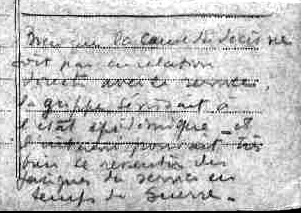 Bien que la cause du décès ne
soit pas en relation
directe avec le service,
la grippe sévissant à
l'état épidémique et
pouvant très
bien se ressentir des
fatigues du service en
temps de guerre.